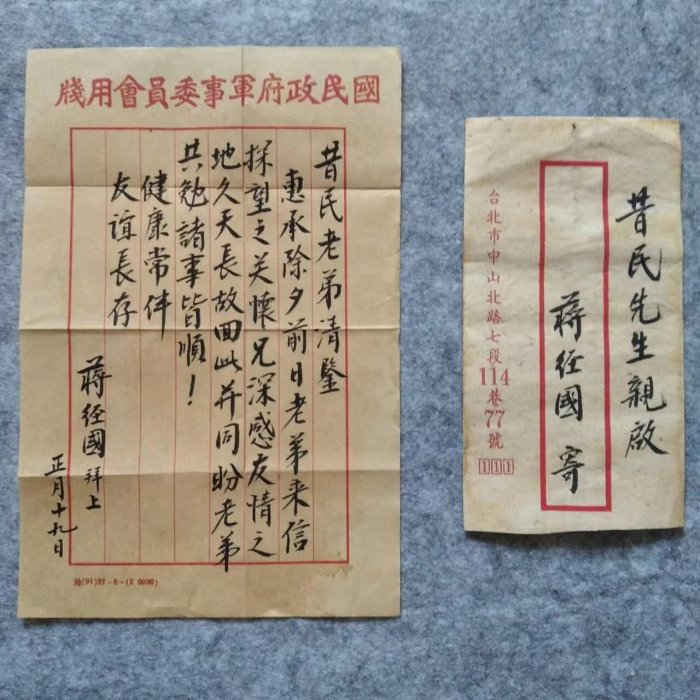 國民政府軍事委員會用牋
昔民老弟清鑒
惠承除夕前日老弟来信
探望之关懷兄深感友情之
地久天長故回此并同盼老弟
共勉諸事皆順！
健康常伴
友谊長存
蔣经國 拜上
正月十九日
局(91)27-8-(2 0000)
昔民先生親啟
蔣经國 寄
台北市中山北路七段114巷77號
111